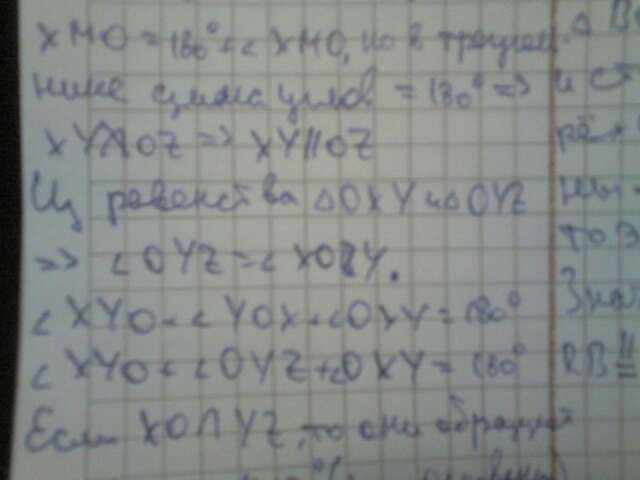 XMO = 180° + ∠XMO, но в треуголь-
нике сумма углов = 180° =>
XY∦OZ => XY∥OZ
Из равенства △OXY и △OYZ
=> ∠OYZ = ∠XOY.
∠XYO + ∠YOX + ∠OXY = 180°
∠XYO + ∠OYZ + ∠OXY = 180°
Если XO∩YZ, то они образуют
и ст
рех
ны
то в
Знач